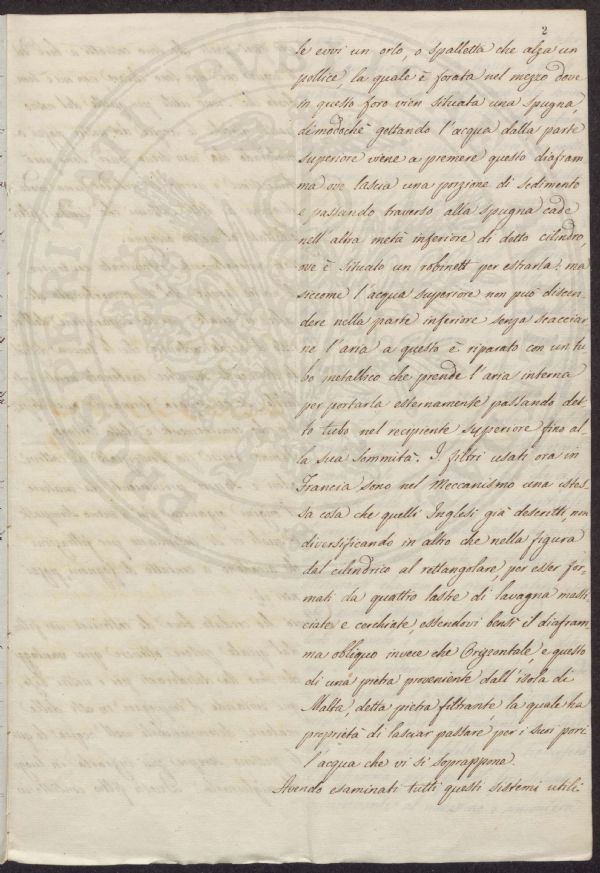 2
le evvi un orlo, o spalletta che alza un
pollice, la quale è forata nel mezzo dove
in questo foro vien situata una spugna,
dimodochè gettando l'acqua dalla parte
superiore viene a premere questo diafram
ma ove lascia una porzione di sedimento
e passando traverso alla spugna cade
nell'altra metà inferiore di detto cilindro,
ove è situato un robinett per estrarla: ma
siccome l'acqua superiore non può discen
dere nella parte inferiore senza scacciar
ne l'aria a questo è riparato con un tu
bo metallico che prende l'aria interna
per portarla esternamente passando det
to tubo nel recipiente superiore fino al
la sua sommità. I filtri usati ora in
Francia sono nel Meccanismo una istes
sa cosa che quelli Inglesi già descritti, non
diversificando in altro che nella figura
dal cilindrico al rettangolare, per esser for
mati da quattro lastre di lavagna masti
ciate e cerchiate, essendovi bensì il diafram
ma obliquo invece che Orizontale, e questo
di una pietra proveniente dall'isola di
Malta, detta pietra filtrante, la quale ha
proprietà di lasciar passare per i suoi pori
l'acqua che vi si soprappone.
Avendo esaminati tutti questi sistemi utili